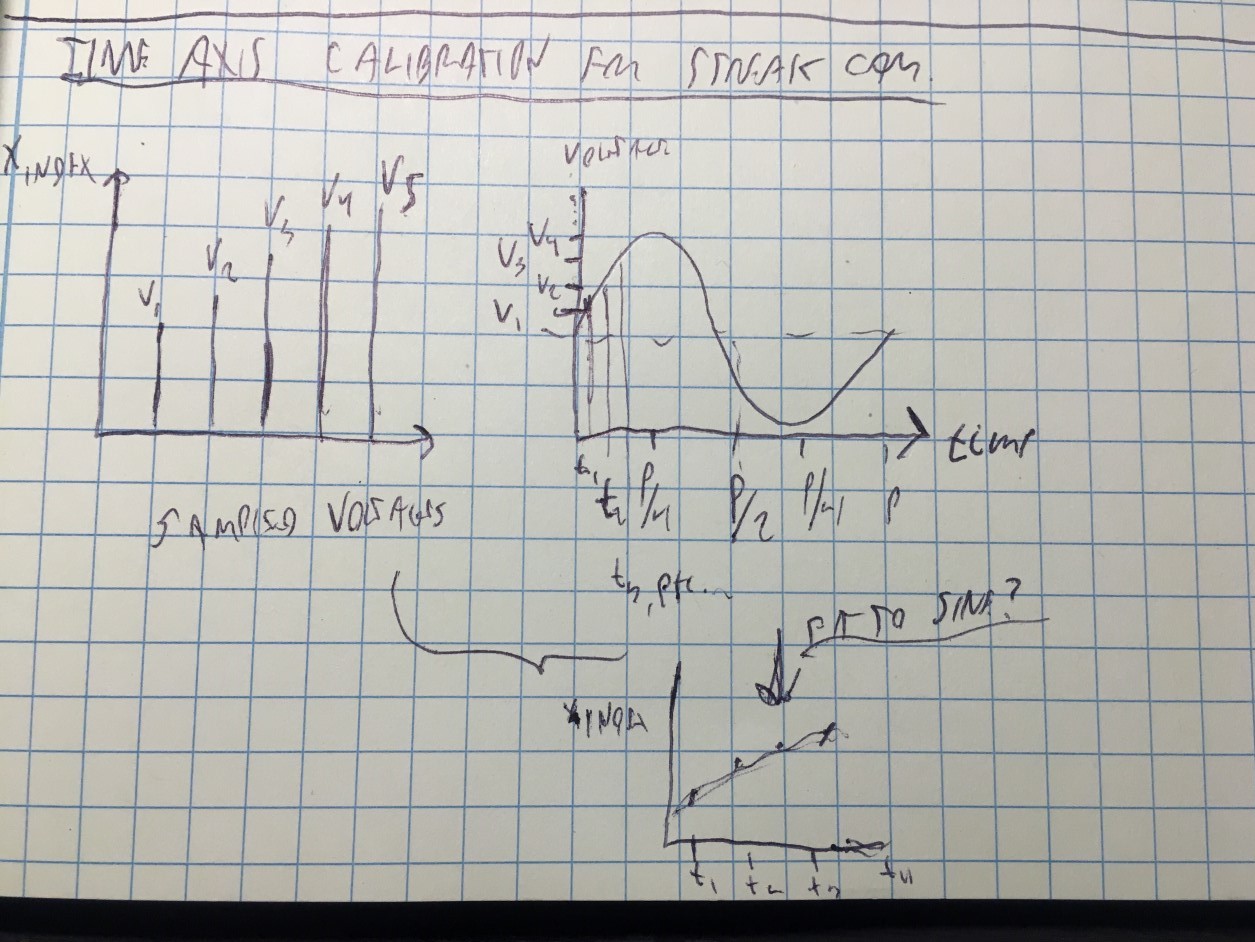 TIME AXIS CALIBRATION FOR STREAK CAM.
X INDEX
V1
V2
V3
V4
V5
SAMPLED VOLTAGES
VOLTAGE
V4
V3
V2
V1
time
t1
t2
P/4
P/2
P/4
P
t3, etc...
FIT TO SINE?
X INDEX
t1
t2
t3
t4